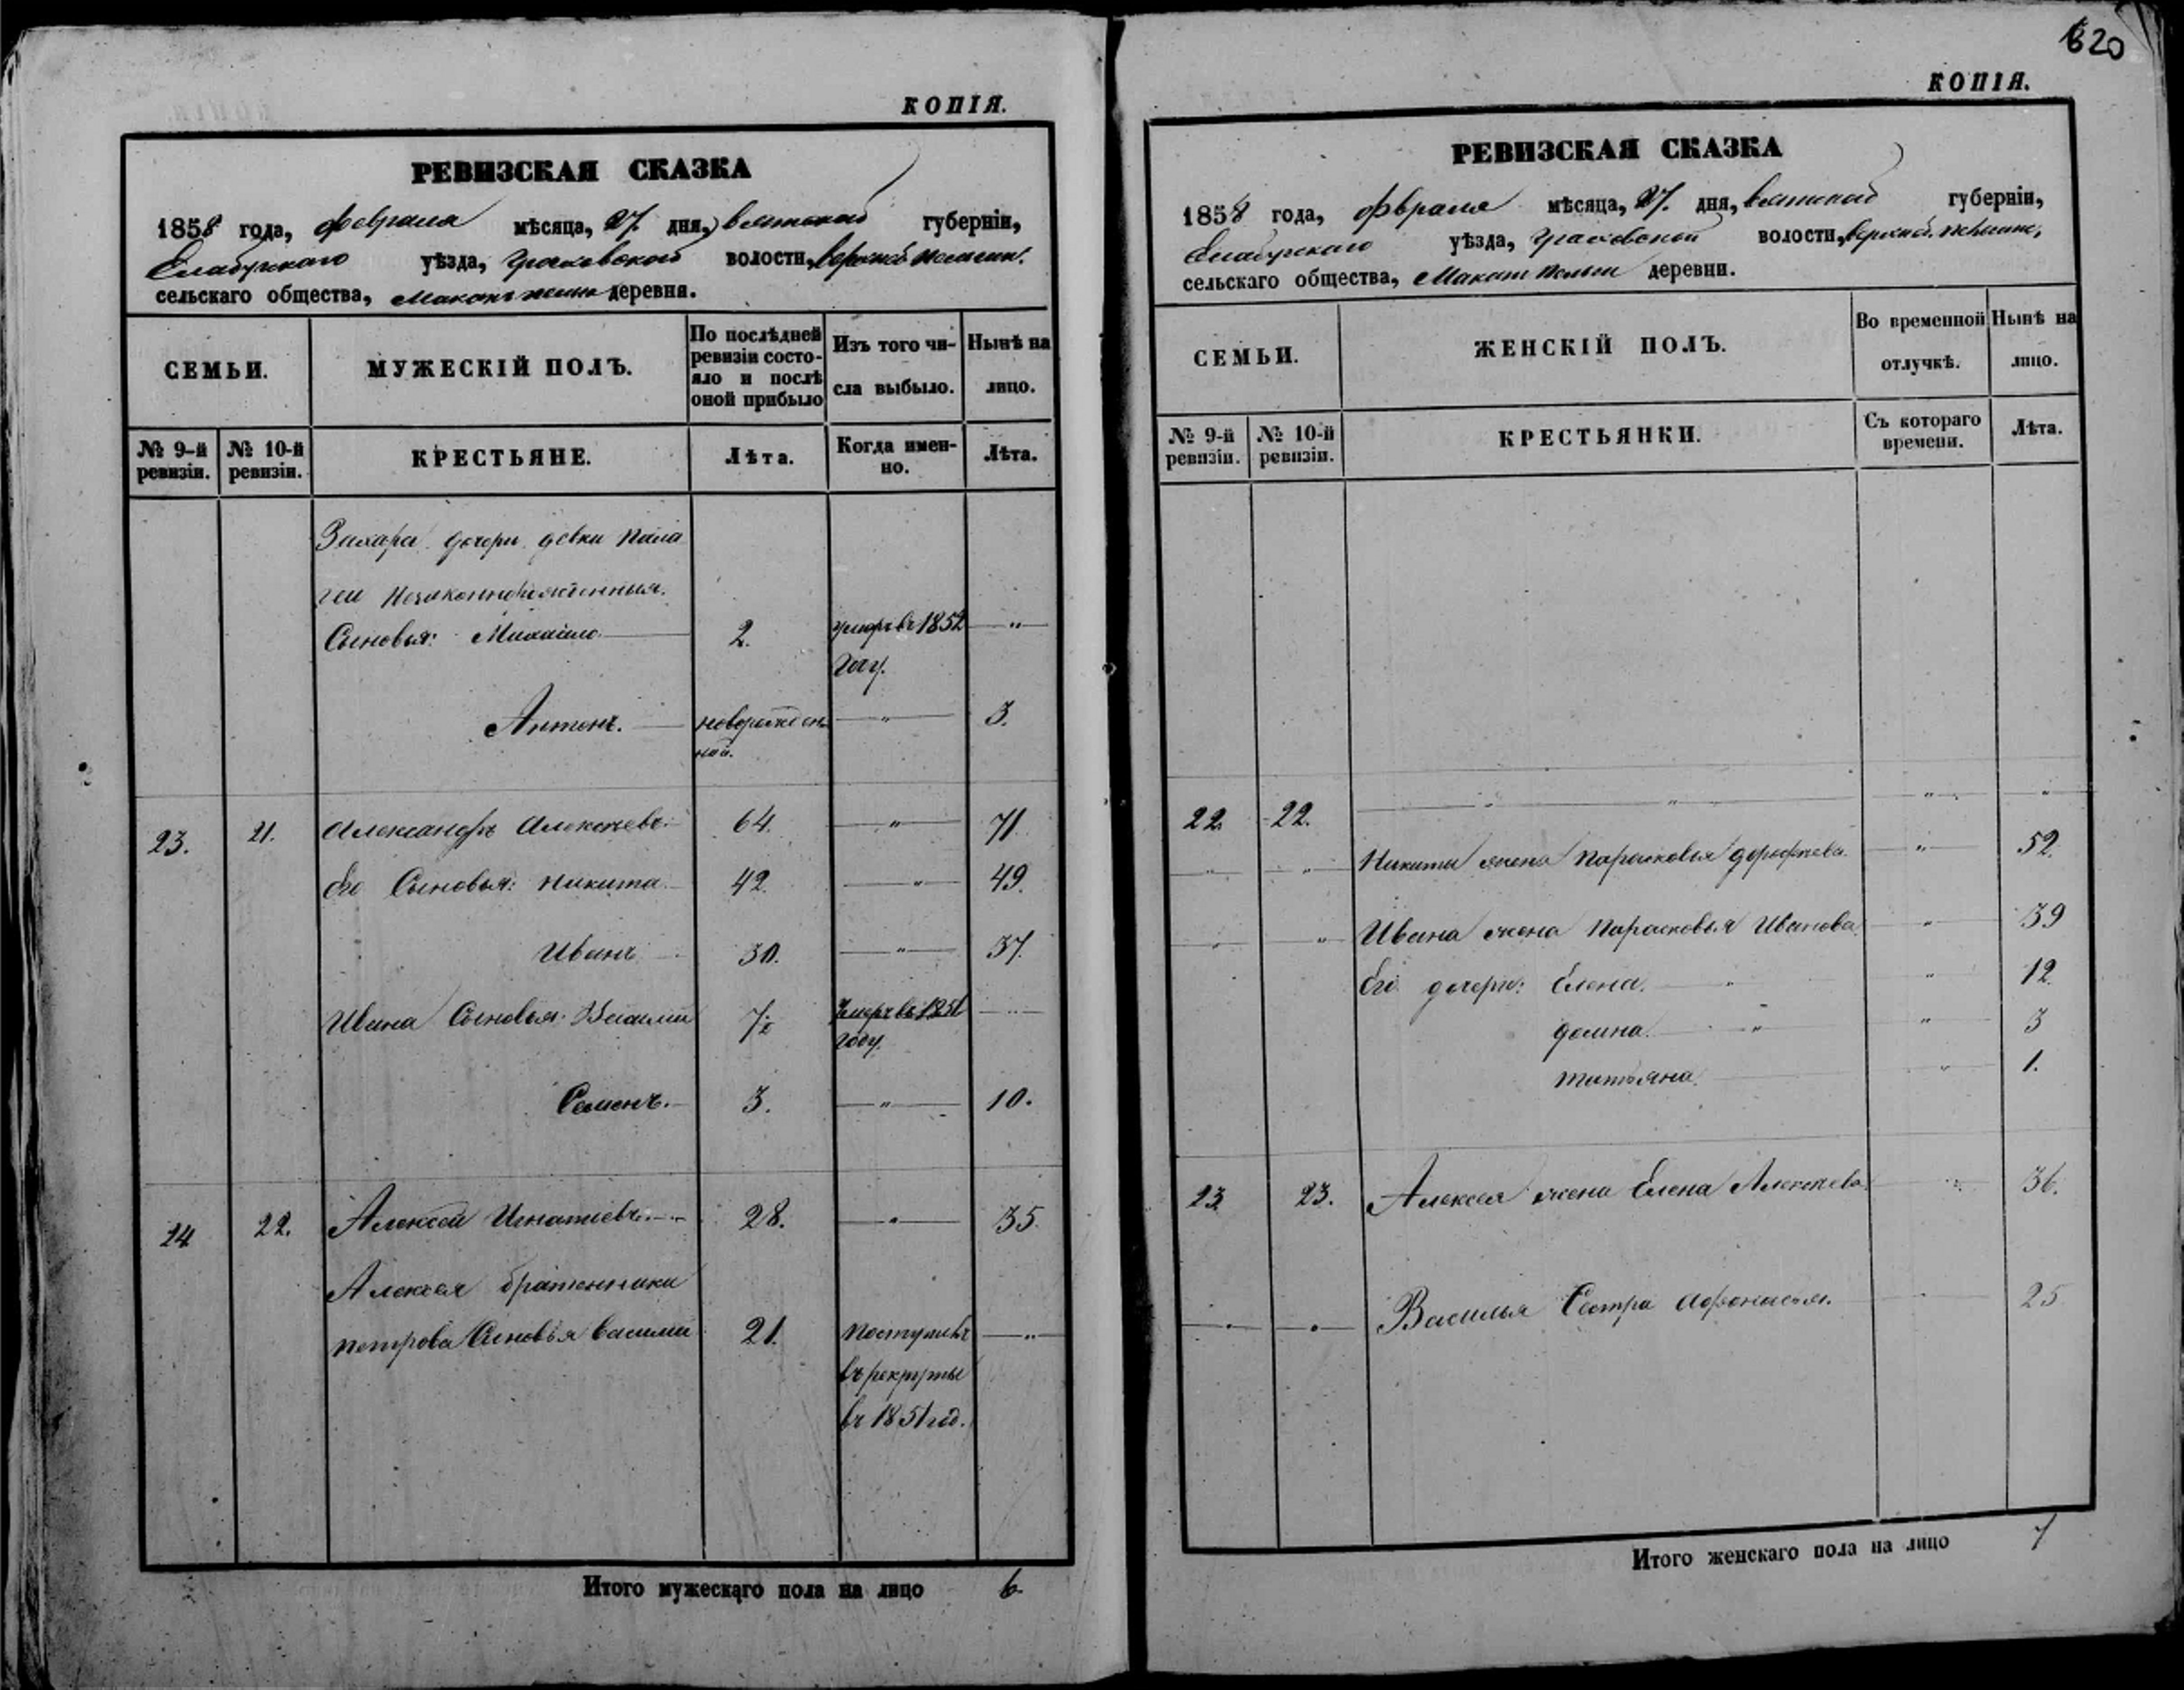 620
КОПІЯ.
РЕВИЗСКАЯ СКАЗКА
1858 года, февраля мѣсяца, 27. дня, вятской губерніи,
Елабужскаго уѣзда, Граховской волости, верхней
сельскаго общества, деревня.
СЕМЬИ.
МУЖЕСКІЙ ПОЛЪ.
По послѣдней ревизіи состояло и послѣ оной прибыло
Изъ того числа выбыло.
Нынѣ на лицо.
№ 9-й ревизіи.
№ 10-й ревизіи.
КРЕСТЬЯНЕ.
Лѣта.
Когда именно.
Лѣта.
Захара дочери девки Пала
геи незаконнорожденныя
Сыновья: Михайло. 2. умеръ въ 1852 —„—
году.
Антонъ. новорожден —„— 3.
ной.
23. 21. Александръ Алексѣевъ. 64. —„— 71
его Сыновья: Никита 42. —„— 49.
Иванъ 30. —„— 37.
Ивана Сыновья: Василий 7½ Умеръ въ 1851 —„—
году.
Семенъ. 3. —„— 10.
24 22. Алексей Игнатиевъ. 28. —„— 35.
Алексея братенники
петрова Сыновья василий 21. поступилъ —„—
въ рекруты
въ 1851 год.
Итого мужескаго пола на лицо 6.
КОПІЯ.
РЕВИЗСКАЯ СКАЗКА
1858 года, февраля мѣсяца, 27. дня, вятской губерніи,
Елабужскаго уѣзда, Граховской волости, верхней
сельскаго общества, деревни.
СЕМЬИ.
ЖЕНСКІЙ ПОЛЪ.
Во временной отлучкѣ.
Нынѣ на лицо.
№ 9-й ревизіи.
№ 10-й ревизіи.
КРЕСТЬЯНКИ.
Съ котораго времени.
Лѣта.
22 22. —„— —„— —„— „
—„— —„— Никиты жена Парасковья дорофеева —„— 52.
—„— —„— Ивана жена Парасковья Иванова —„— 39
Его дочери: Елена. —„— 12.
домна. —„— 3
татьяна. —„— 1.
23 23. Алексея жена Елена Алексеева —„— 36.
—„— —„— Василья Сестра Афонасья. —„— 25
Итого женскаго пола на лицо 7